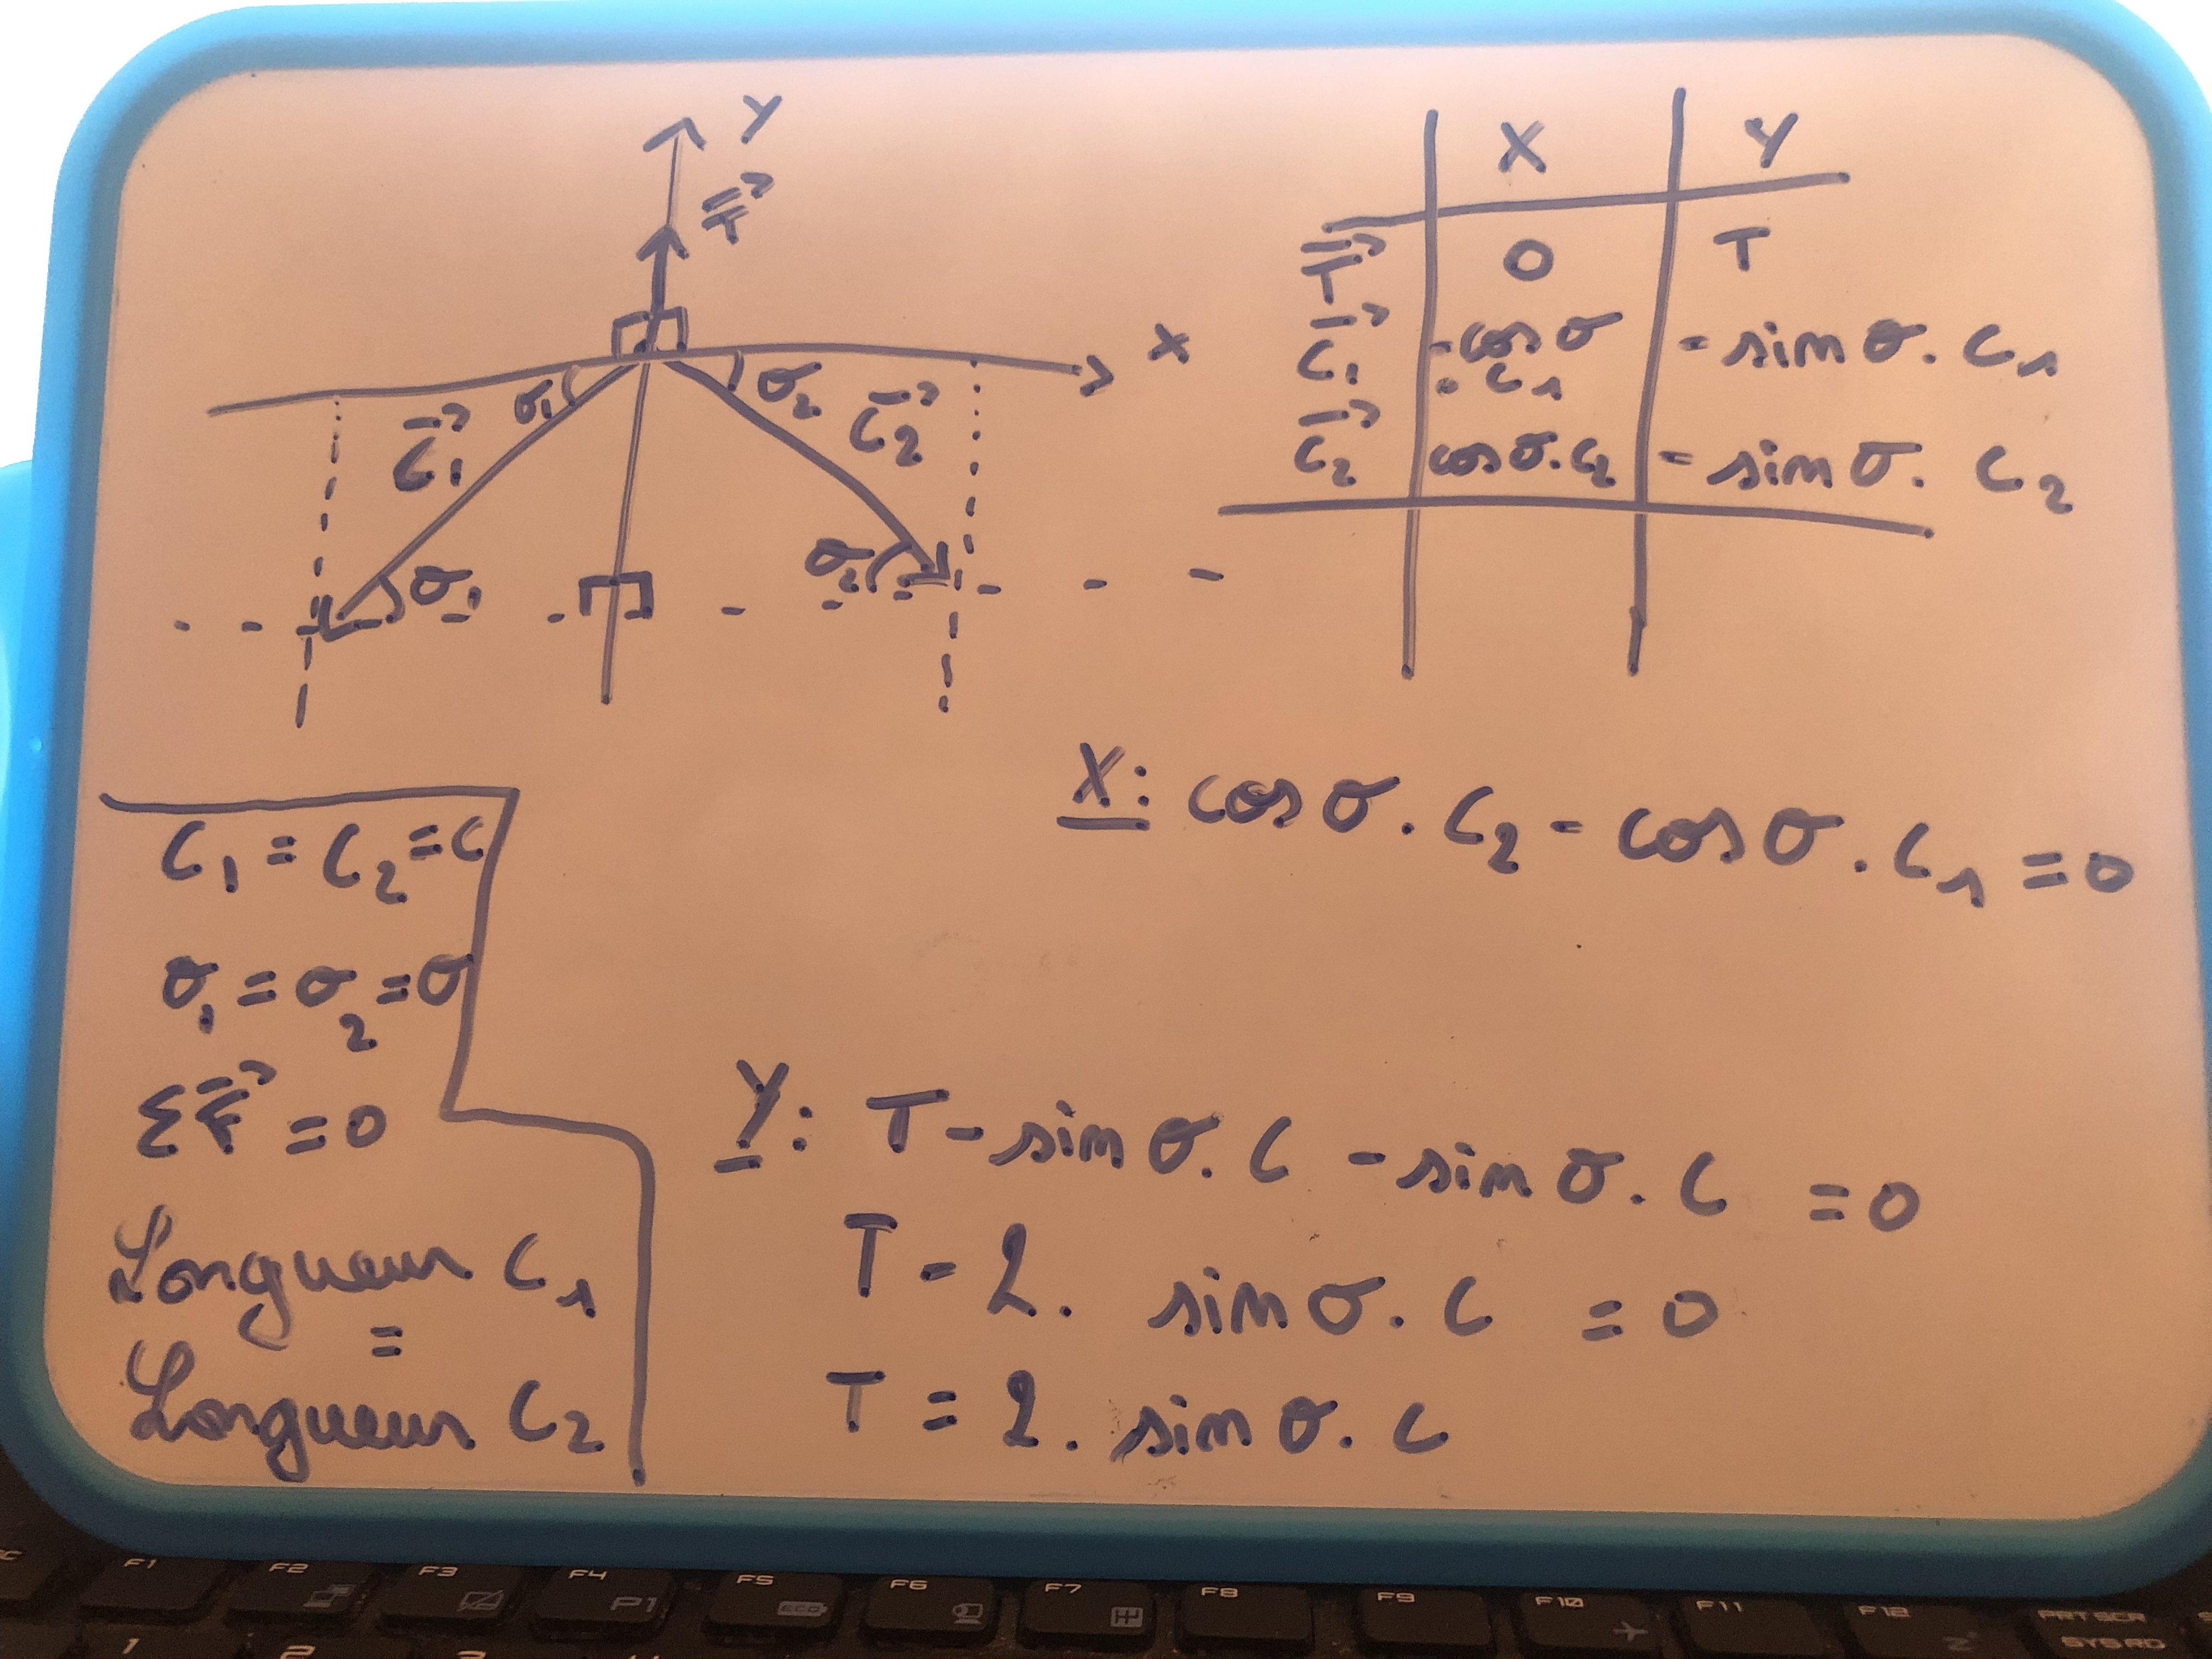 Y
T⃗
X
σ₁
σ₂
C⃗₁
C⃗₂
σ₁
σ₂
X Y
T⃗ 0 T
C⃗₁ -cos σ . C₁ - sin σ . C₁
C⃗₂ cos σ . C₂ - sin σ . C₂
C₁ = C₂ = C
σ₁ = σ₂ = σ
ΣF⃗ = 0
Longueur C₁
=
Longueur C₂
X: cos σ . C₂ - cos σ . C₁ = 0
Y: T - sin σ . C - sin σ . C = 0
T - 2 . sin σ . C = 0
T = 2 . sin σ . C
F1 F2 F3 F4 F5 F6 F7 F8 F9 F10 F11 F12 PRT SCR
P1 ECO Zz SYS RQ
1 2 3